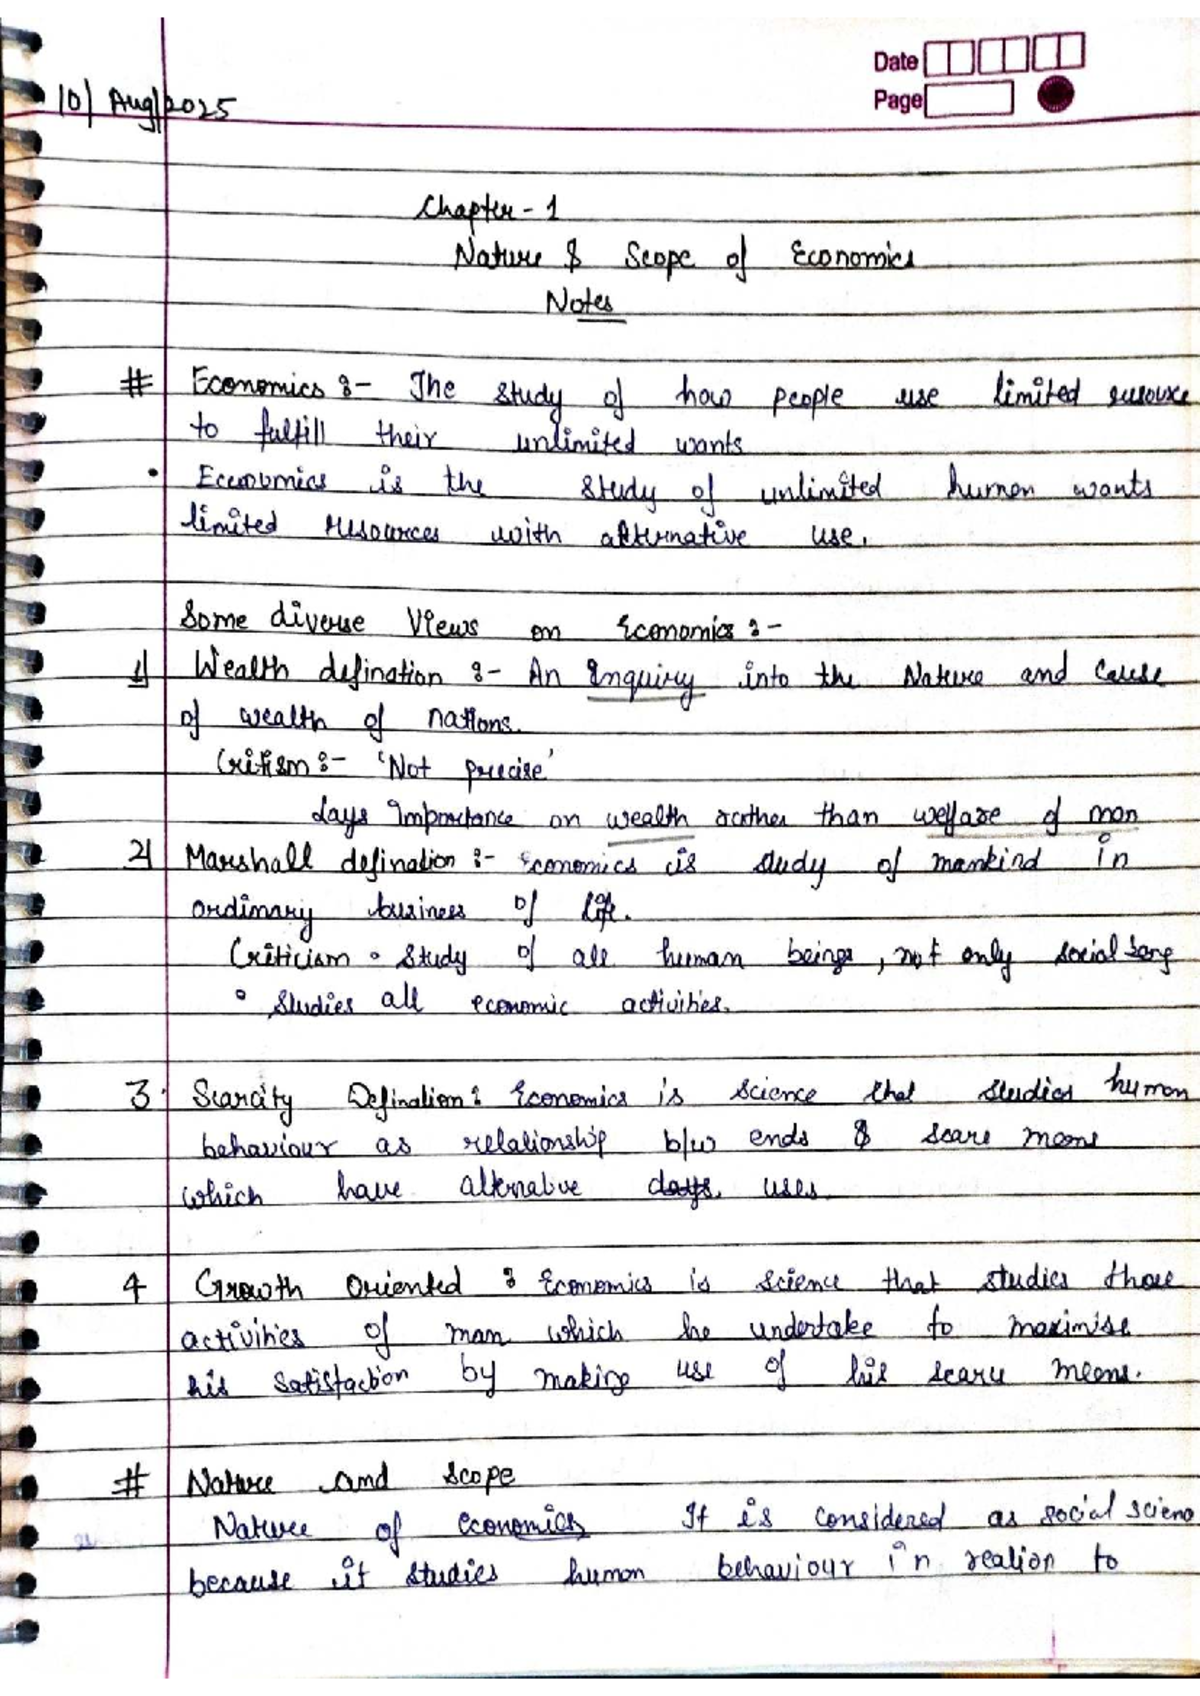 Date
Page
10/ Aug/2025
Chapter - 1
Nature & Scope of Economics
Notes
# Economics :- The study of how people use limited resource
to fulfill their unlimited wants
• Economics is the study of unlimited human wants
limited resources with alternative use.
Some diverse Views on Economics :-
1) Wealth defination :- An Enquiry into the Nature and Cause
of wealth of nations.
Critism :- 'Not precise'
days Importance on wealth rather than welfare of man
2) Marshall defination :- Economics is study of mankind in
ordinary business of life.
Criticism • Study of all human beings, not only social
• Studies all economic activities.
3. Scarcity Defination : Economics is science that studies human
behaviour as relationship b/w ends & scare means
which have alternative days. uses.
4 Growth Oriented : Economics is science that studies those
activities of man which he undertake to maximise
his satisfaction by making use of his scarce means.
# Nature and scope
Nature of economics It is considered as social scienc
because it studies human behaviour in realion to